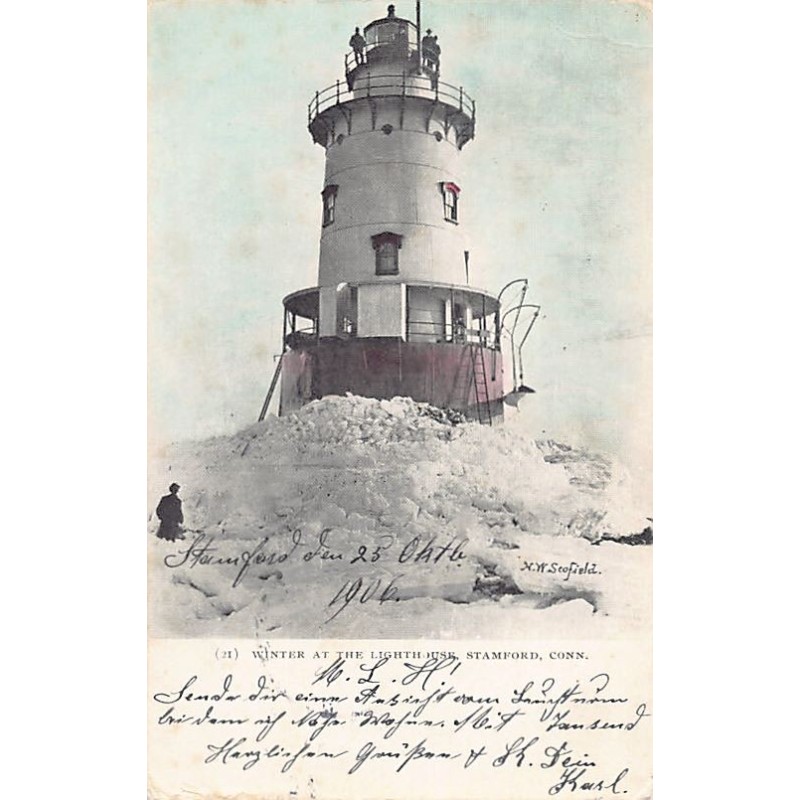 Stamford den 25 Oktb.
1906.
N.W Scofield.
(21) WINTER AT THE LIGHTHOUSE, STAMFORD, CONN.
M. L. H!
Sende dir eine Ansicht vom Leuchtturm
bei dem ich Nahe Wohne. Mit Tausend
Herzlichen Grüßen & K. Dein
Karl.